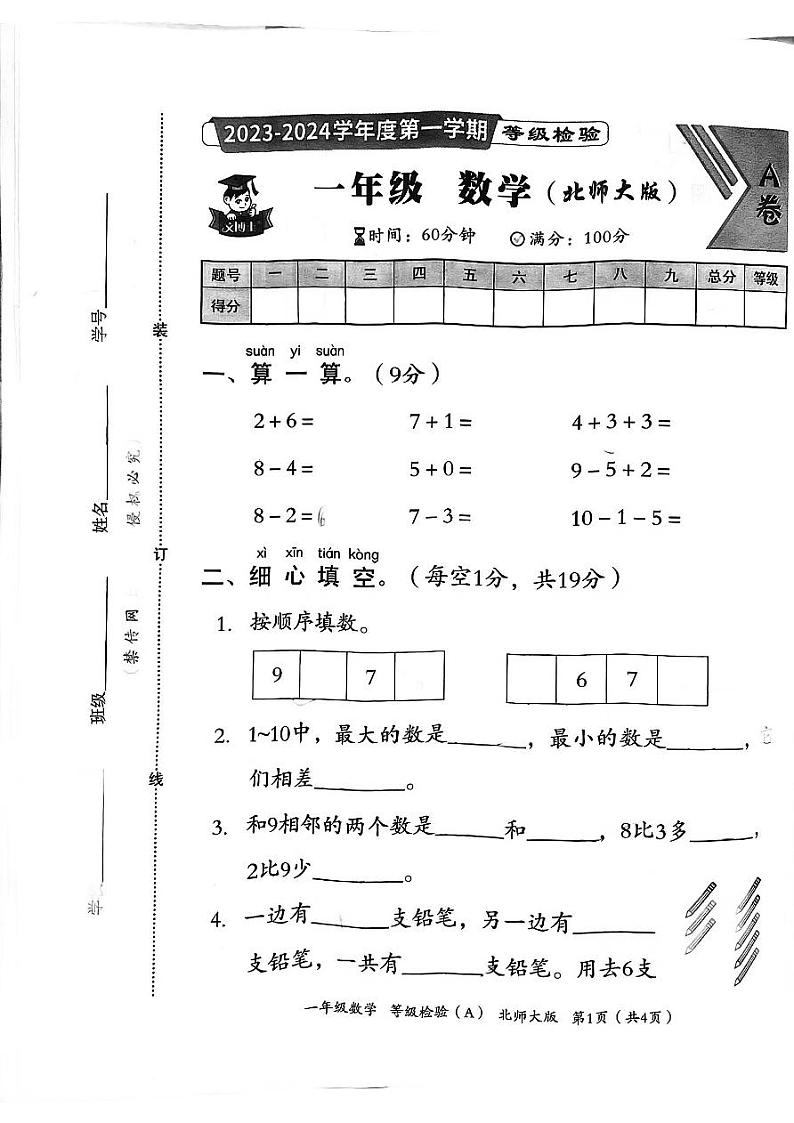 2023-2024学年度第一学期 等级检验
A卷
一年级 数学（北师大版）
时间：60分钟 满分：100分
题号 一 二 三 四 五 六 七 八 九 总分 等级
得分
suàn yi suàn
一、算一算。（9分）
2+6= 7+1= 4+3+3=
8-4= 5+0= 9-5+2=
8-2=6 7-3= 10-1-5=
xì xīn tián kòng
二、细心填空。（每空1分，共19分）
1. 按顺序填数。
9 7 6 7
2. 1~10中，最大的数是______，最小的数是______，它
们相差______。
3. 和9相邻的两个数是______和______，8比3多______，
2比9少______。
4. 一边有______支铅笔，另一边有______
支铅笔，一共有______支铅笔。用去6支
一年级数学 等级检验（A） 北师大版 第1页（共4页）
学号
姓名
班级
学
装
订
线
侵权必究）
（禁传网上